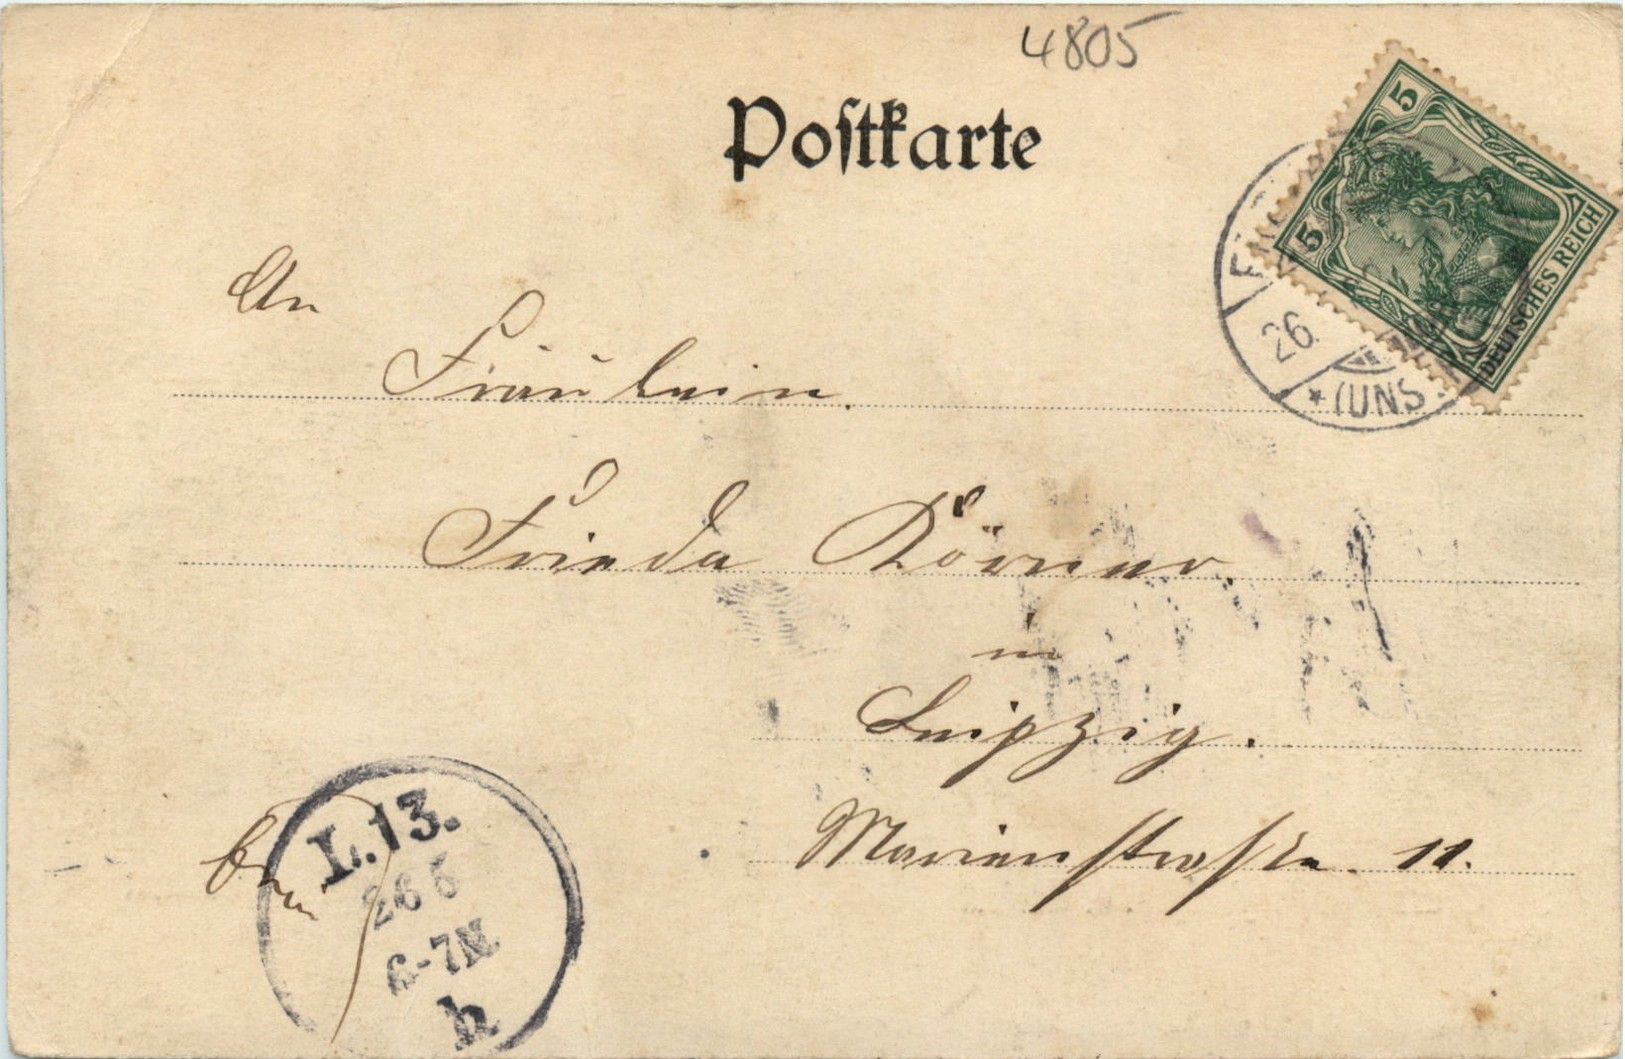 4805
Postkarte
5
5
DEUTSCHES REICH
26.
* (UNS
An
Fräulein.
Frieda Körner.
in
Leipzig.
Marienstraße. 11.
L.13.
26 5
6-7N
b.